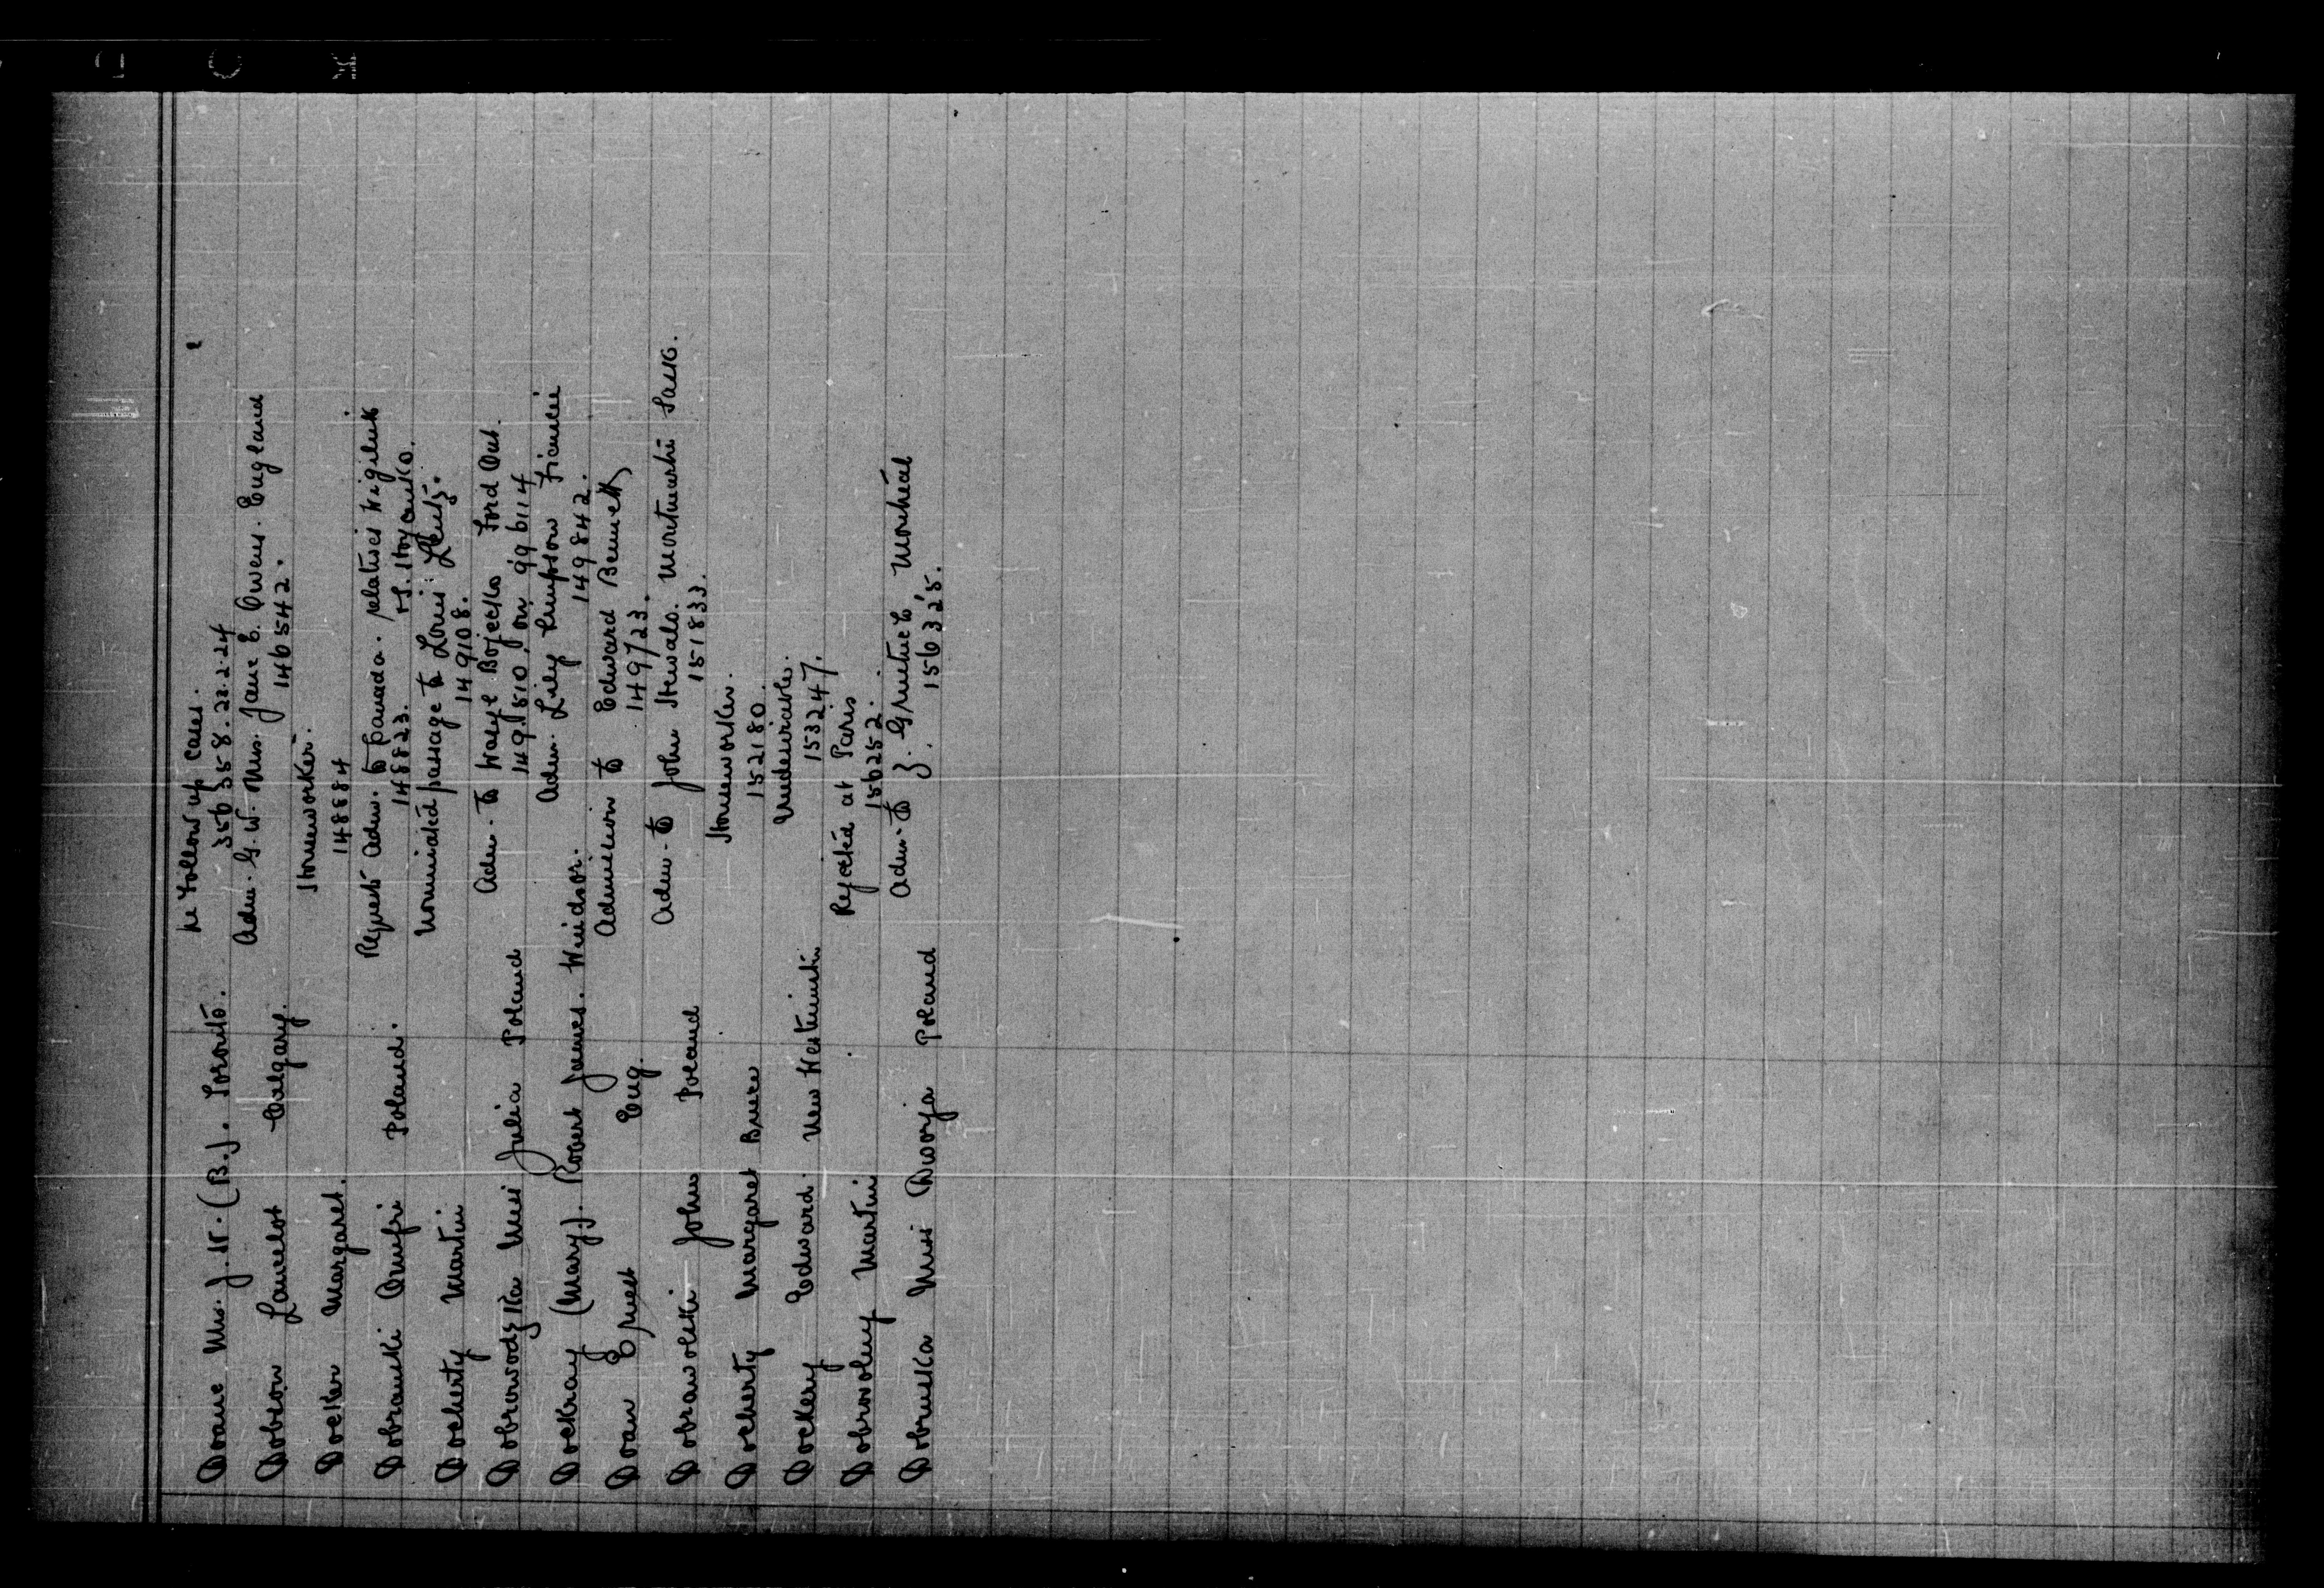 Doane Mrs. J. H. (B.J. Toronto. re Follow up Cases.
356358.22.2.24
Dobson Lancelot Calgary. Adm. G.W. Mrs. Jane E. Owens. England
146542.
Docker Margaret. Homeworker.
148884
Dobranski Onufri Poland. Request adm. to Canada. relatives
148823.
Docherty Martin Nominated passage to Louis
149108.
Dobrowodzka Miss Julia Poland Adm. to Wasyl Ford Ont.
149.810.
Dockray (Mary). Robert James. Windsor. Adm. Lily Simpson Fiancée
149842.
Doan Ernest Eng. Admission to Edward Bennett
149723.
Dobrawolski John Poland Adm. to John Sask.
151833.
Docherty Margaret Bruce Homeworker.
152180.
Dockery Edward New Westminster Undesirable.
153247.
Dobrowolny Martin Rejected at Paris
156252.
Dobruska Miss Dworja Poland Adm. to Montreal
156325.